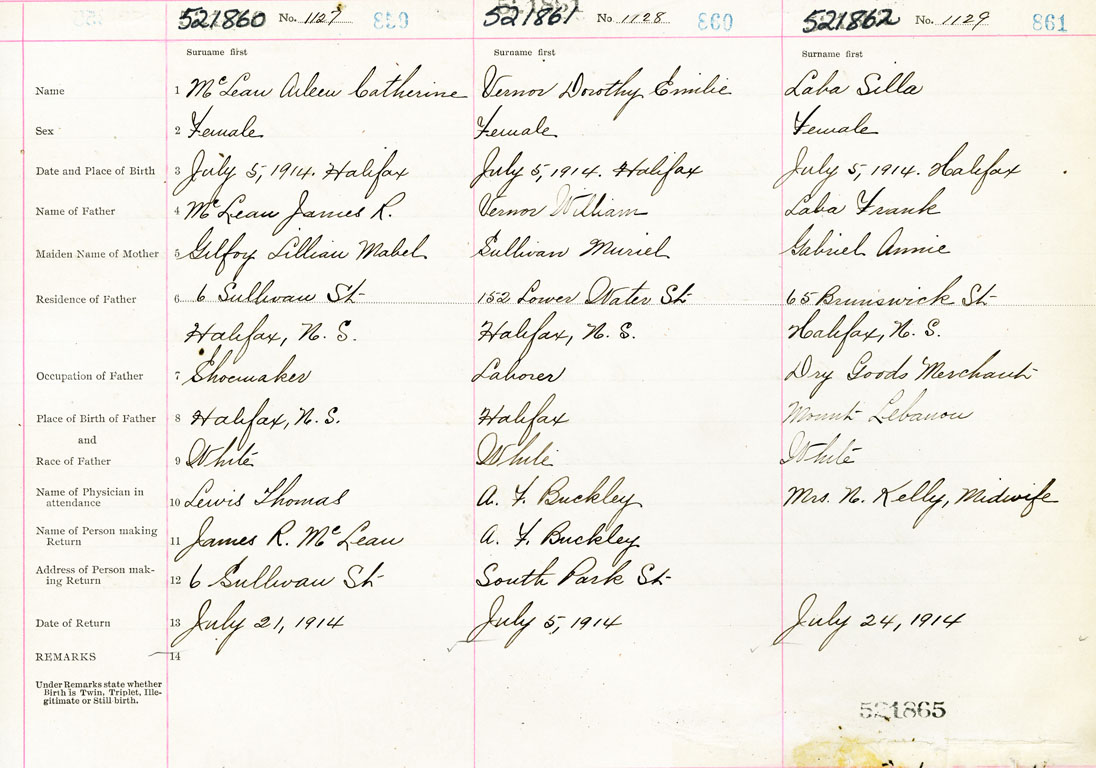 521860 No. 1127 859 521861 No. 1128 860 521862 No. 1129 861
Surname first Surname first Surname first
Name 1 McLean Aileen Catherine Vernor Dorothy Emilie Laba Silla
Sex 2 Female Female Female
Date and Place of Birth 3 July 5, 1914. Halifax July 5, 1914. Halifax July 5, 1914. Halifax
Name of Father 4 McLean James R. Vernor William Laba Frank
Maiden Name of Mother 5 Gilfoy Lillian Mabel Sullivan Muriel Gabriel Annie
Residence of Father 6 6 Sullivan St 152 Lower Water St 65 Brunswick St
Halifax, N. S. Halifax, N. S. Halifax, N. S.
Occupation of Father 7 Shoemaker Laborer Dry Goods Merchant
Place of Birth of Father 8 Halifax, N. S. Halifax Mount Lebanon
and
Race of Father 9 White White White
Name of Physician in
attendance 10 Lewis Thomas A. F. Buckley Mrs. N. Kelly, Midwife
Name of Person making
Return 11 James R. McLean A. F. Buckley
Address of Person mak-
ing Return 12 6 Sullivan St South Park St
Date of Return 13 July 21, 1914 July 5, 1914 July 24, 1914
REMARKS 14
Under Remarks state whether
Birth is Twin, Triplet, Ille-
gitimate or Still-birth.
521865